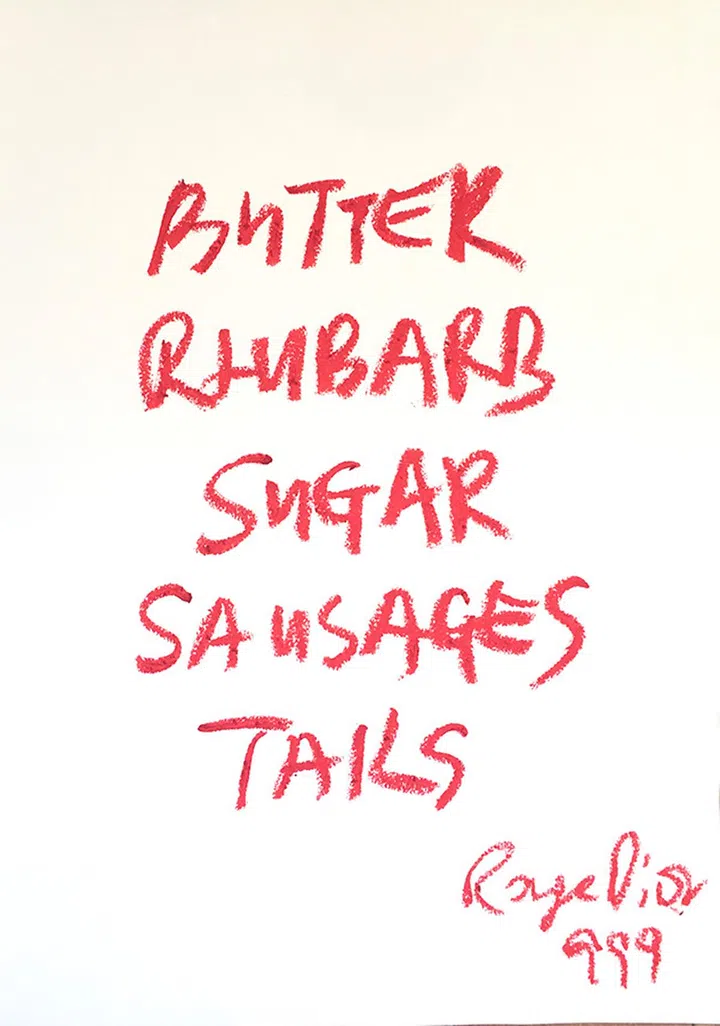 BUTTER
RHUBARB
SUGAR
SAUSAGES
TAILS
Rouge Dior
999